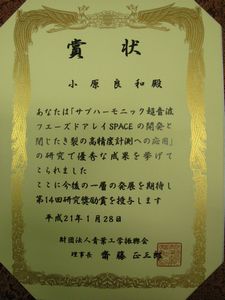 賞状
小原良和殿
あなたは「サブハーモニック超音波
フェーズドアレイSPACEの開発と
閉じたき裂の高精度計測への応用」
の研究で優秀な成果を挙げて
こられました
ここに今後の一層の発展を期待し
第14回研究奨励賞を授与します
平成21年1月28日
財団法人青葉工学振興会
理事長 齋藤正三郎